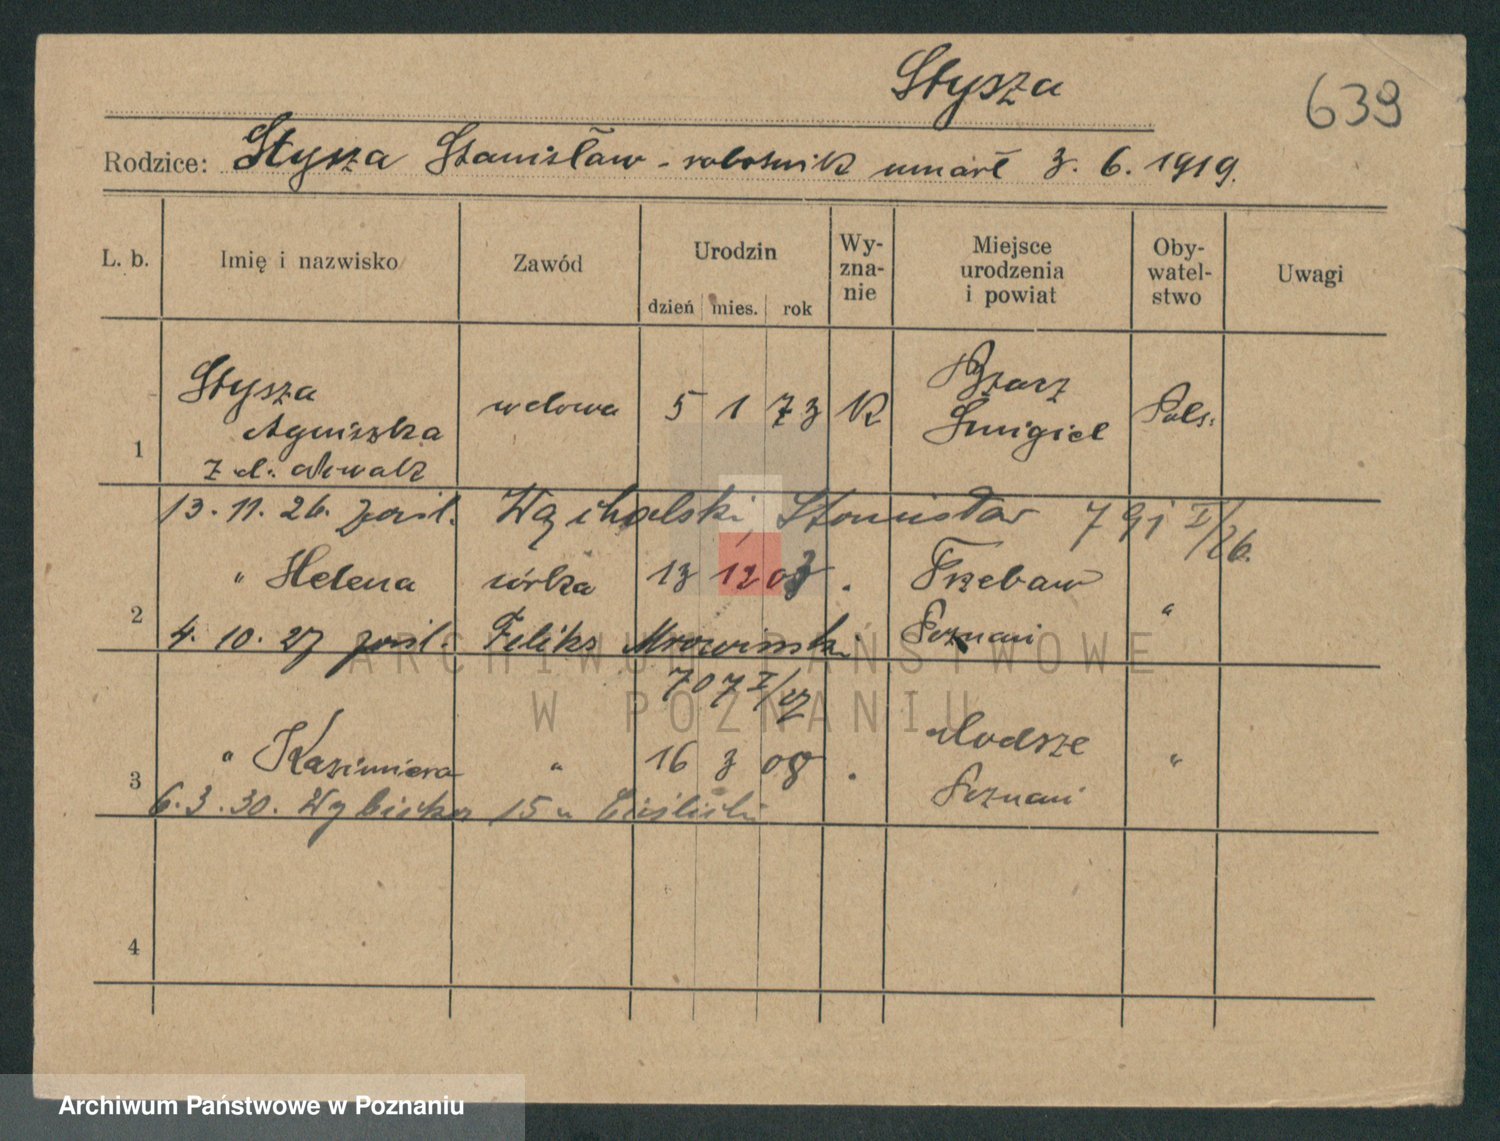 Stysza
639
Rodzice: Stysza Stanisław - robotnik umarł 3. 6. 1919.
L. b. Imię i nazwisko Zawód Urodzin dzień mies. rok Wy-zna-nie Miejsce urodzenia i powiat Oby-watel-stwo Uwagi
1 Stysza Agnieszka wdowa 5 1 73 K Śmigiel Pols.
z d. Nowak
13. 11. 26. Stanisław 791 I/26.
2 " Helena córka 13 12 03 . Trzebaw Poznań "
4. 10. 27 Feliks Mrowiński
707 I/27
3 " Kazimiera " 16 3 08 . Poznań "
6. 3. 30. 15 u
4
ARCHIWUM PAŃSTWOWE
W POZNANIU
Archiwum Państwowe w Poznaniu